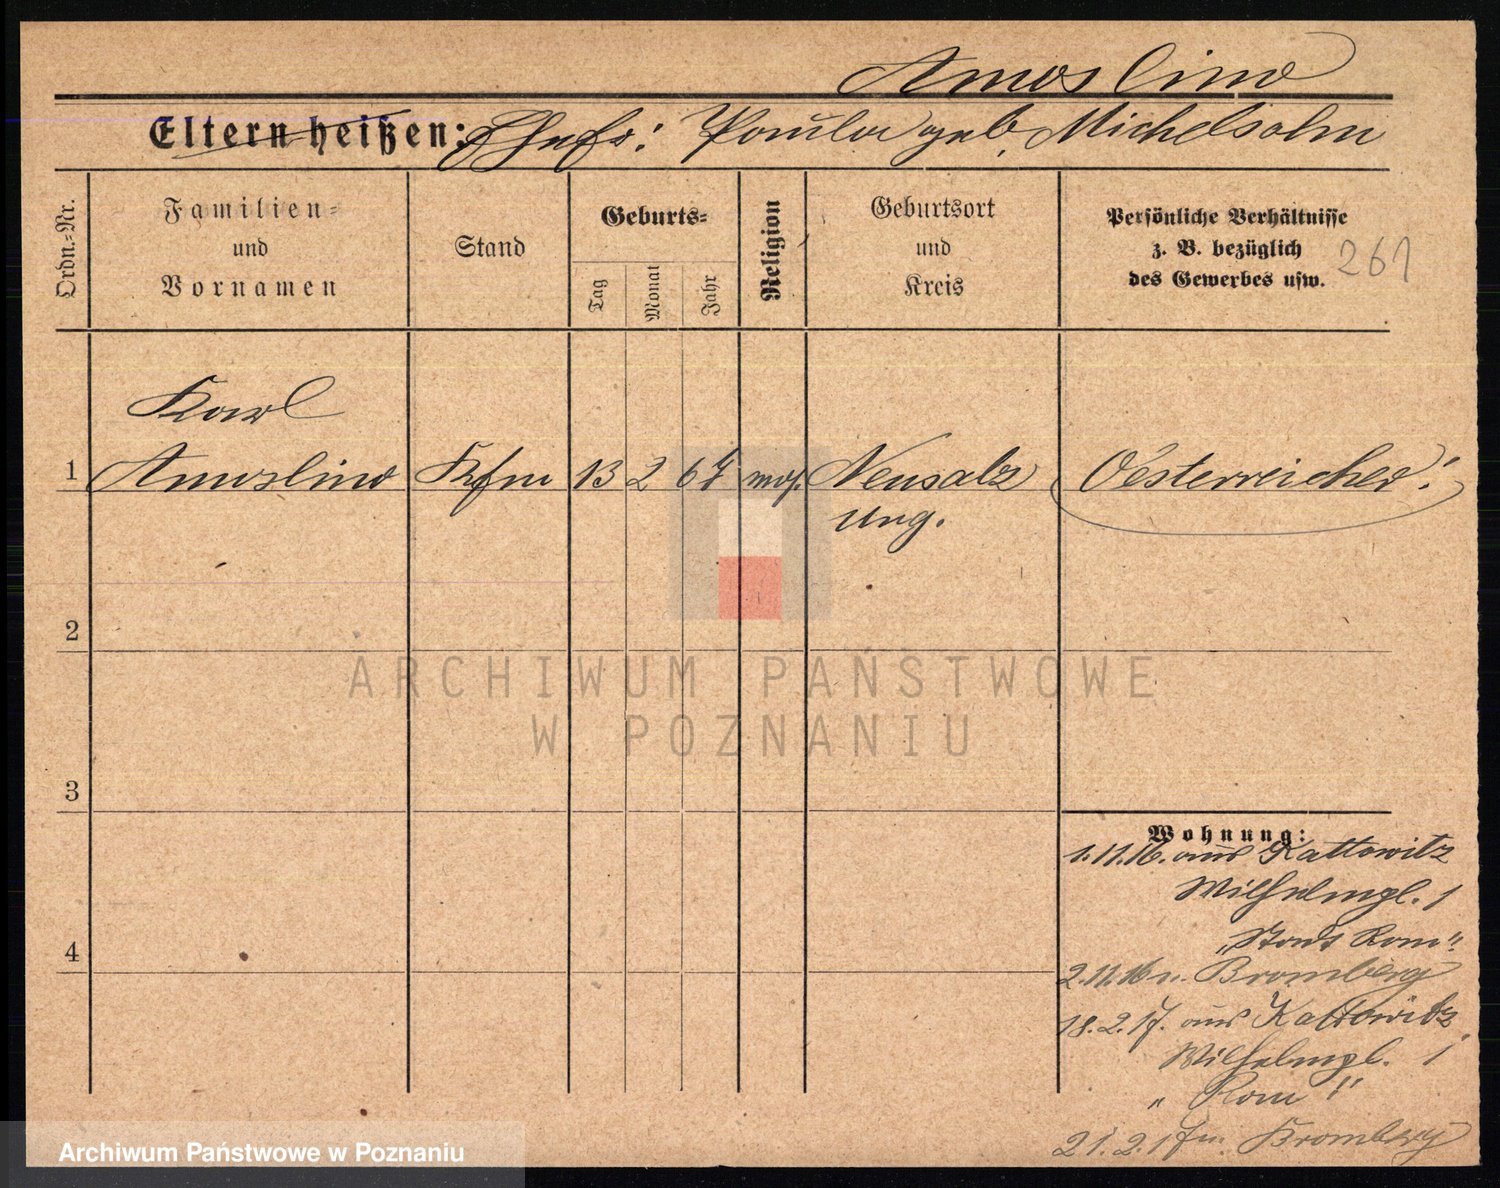 Amoslino
Eltern heißen: Ehefr: Paula geb. Michelsohn
Ordn.-Nr.
Familien-
und
Vornamen
Stand
Geburts-
Tag
Monat
Jahr
Religion
Geburtsort
und
Kreis
Persönliche Verhältnisse
z. B. bezüglich
des Gewerbes usw.
261
Karl
1 Amoslino Kfm 13 2 67 mos. Neusalz Oesterreicher!
Ung.
2
ARCHIWUM PAŃSTWOWE
W POZNANIU
3
Wohnung:
1.11.16. aus Kattowitz
Wilhelmpl. 1
"Stadt Rom".
4
2.11.16 n. Bromberg
18.2.17. aus Kattowitz
Wilhelmpl. 1
"Rom"
21.2.17 n. Bromberg
Archiwum Państwowe w Poznaniu